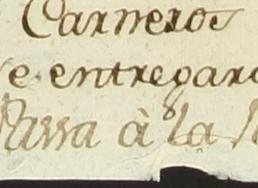 Carneros
e entregaro
Passa à la